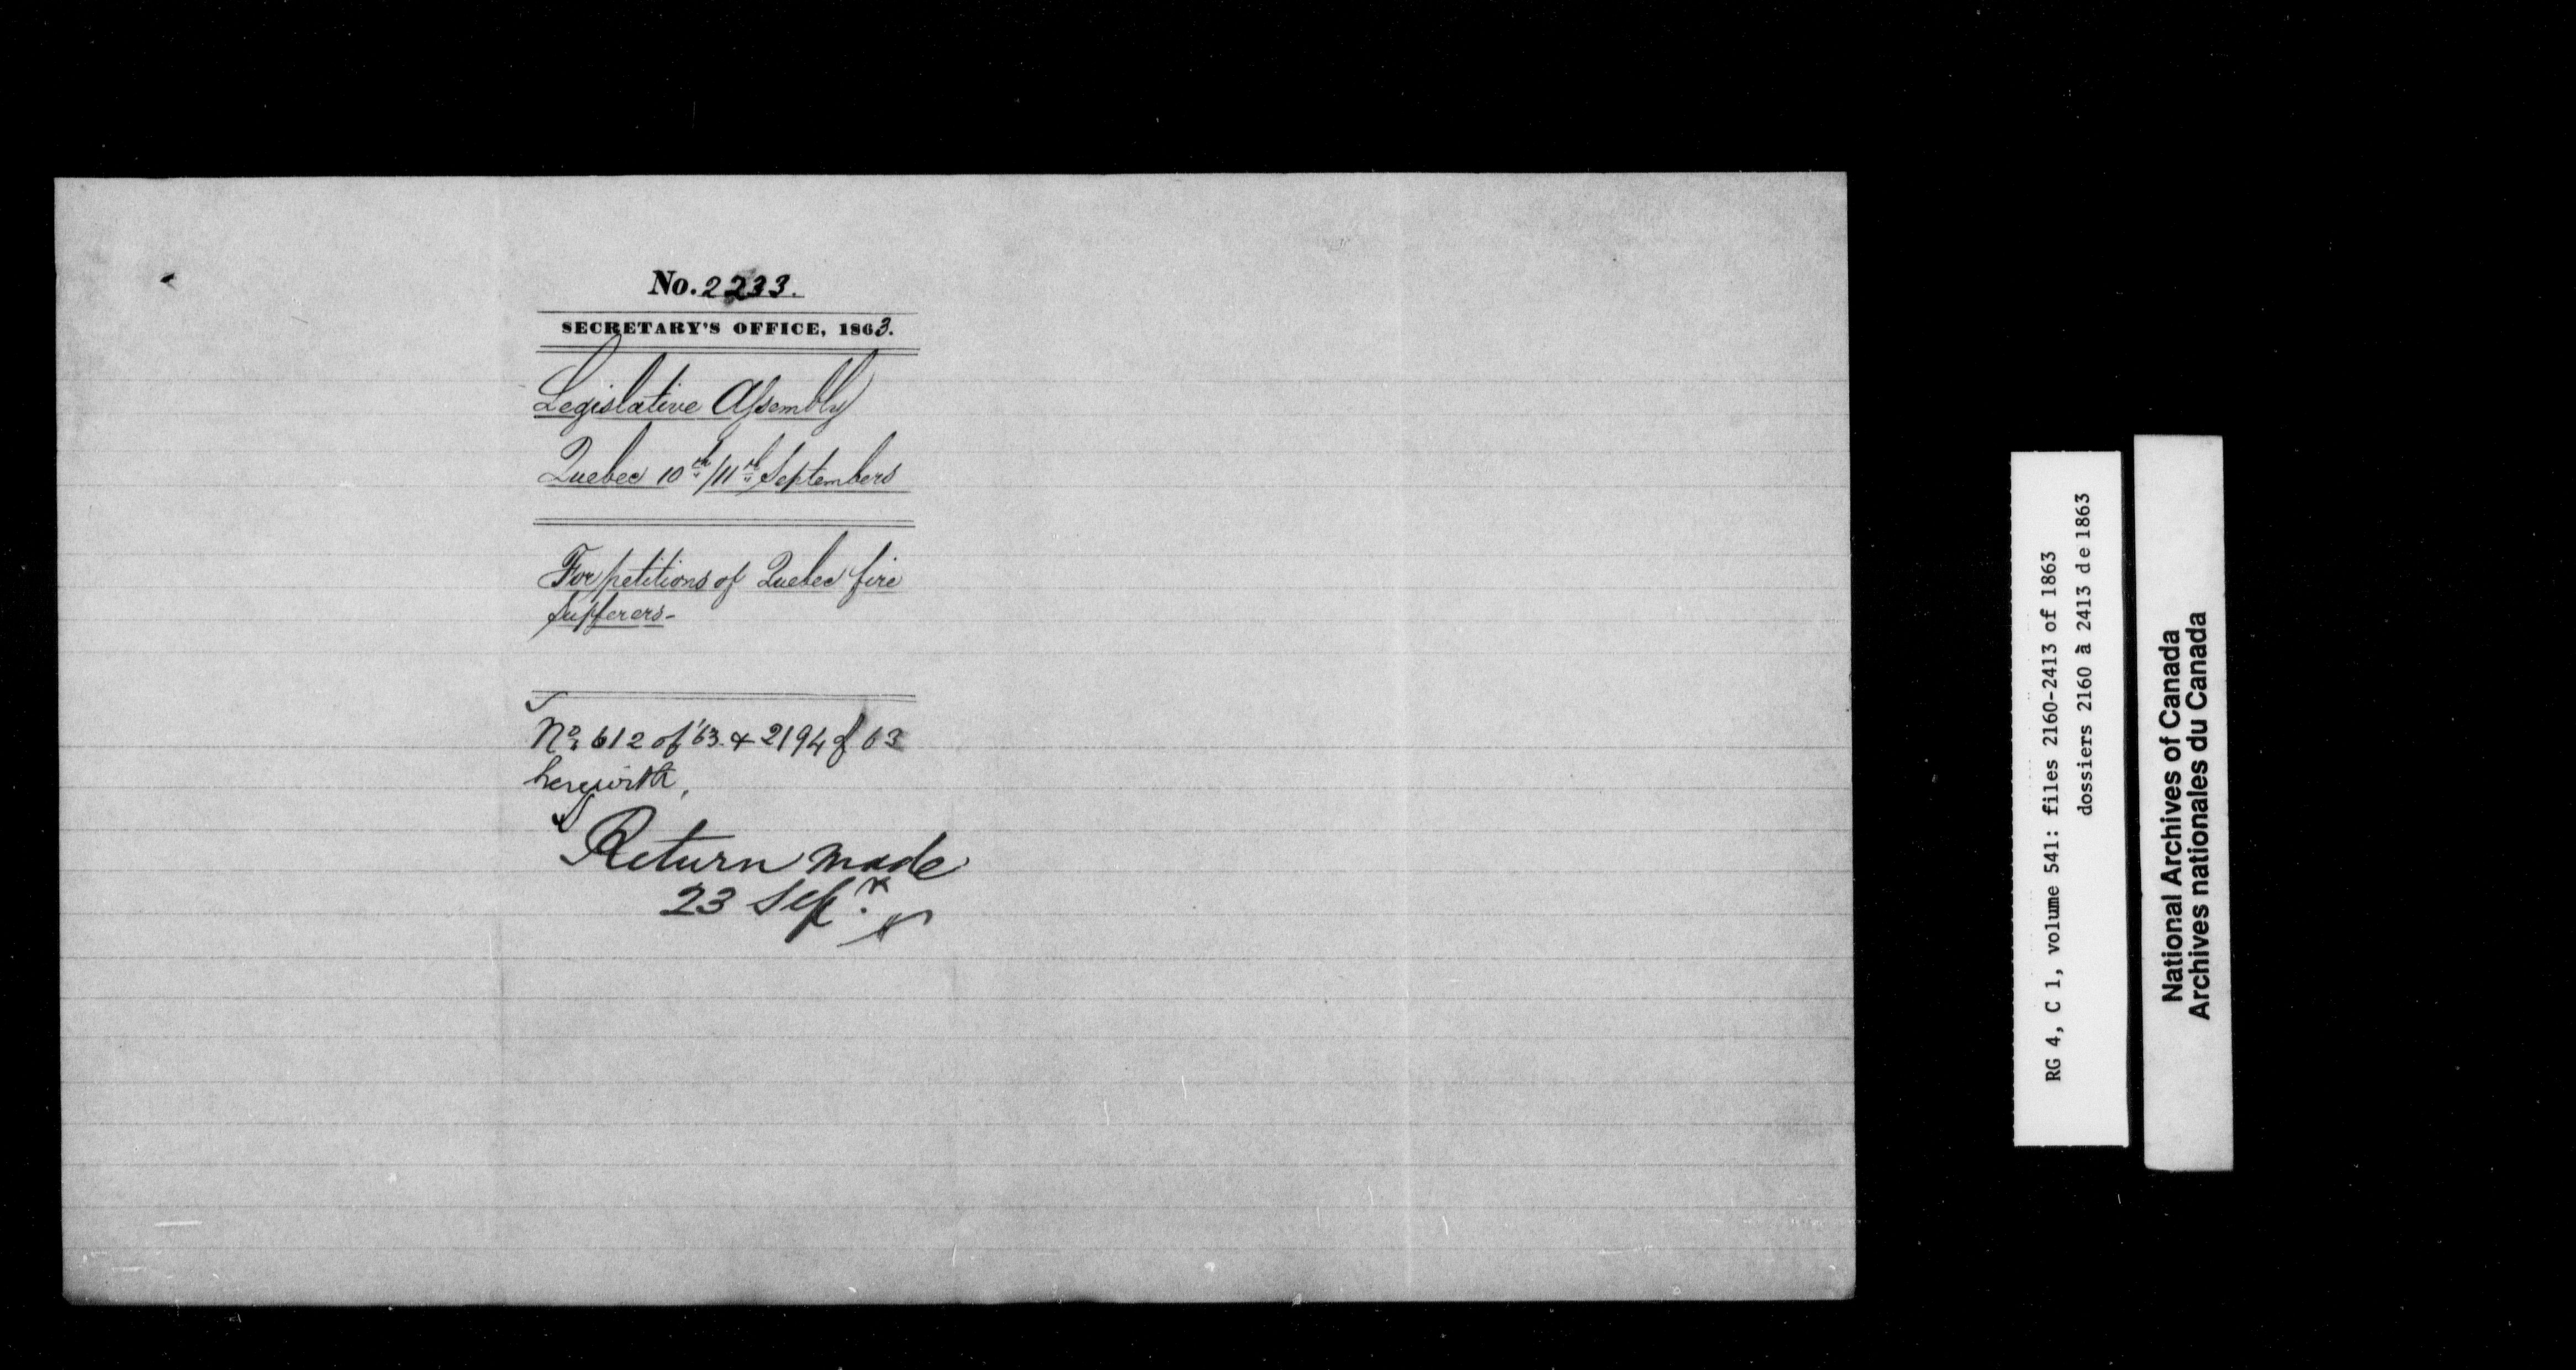 No. 2233.
SECRETARY'S OFFICE, 1863.
Legislative Assembly
Quebec 10th/11th September
For petitions of Quebec fire
Sufferers-
No 612 of '63 & 2194 of 63
herewith,
Return made
23 Sepr.
RG 4, C 1, volume 541: files 2160-2413 of 1863
dossiers 2160 à 2413 de 1863
National Archives of Canada
Archives nationales du Canada